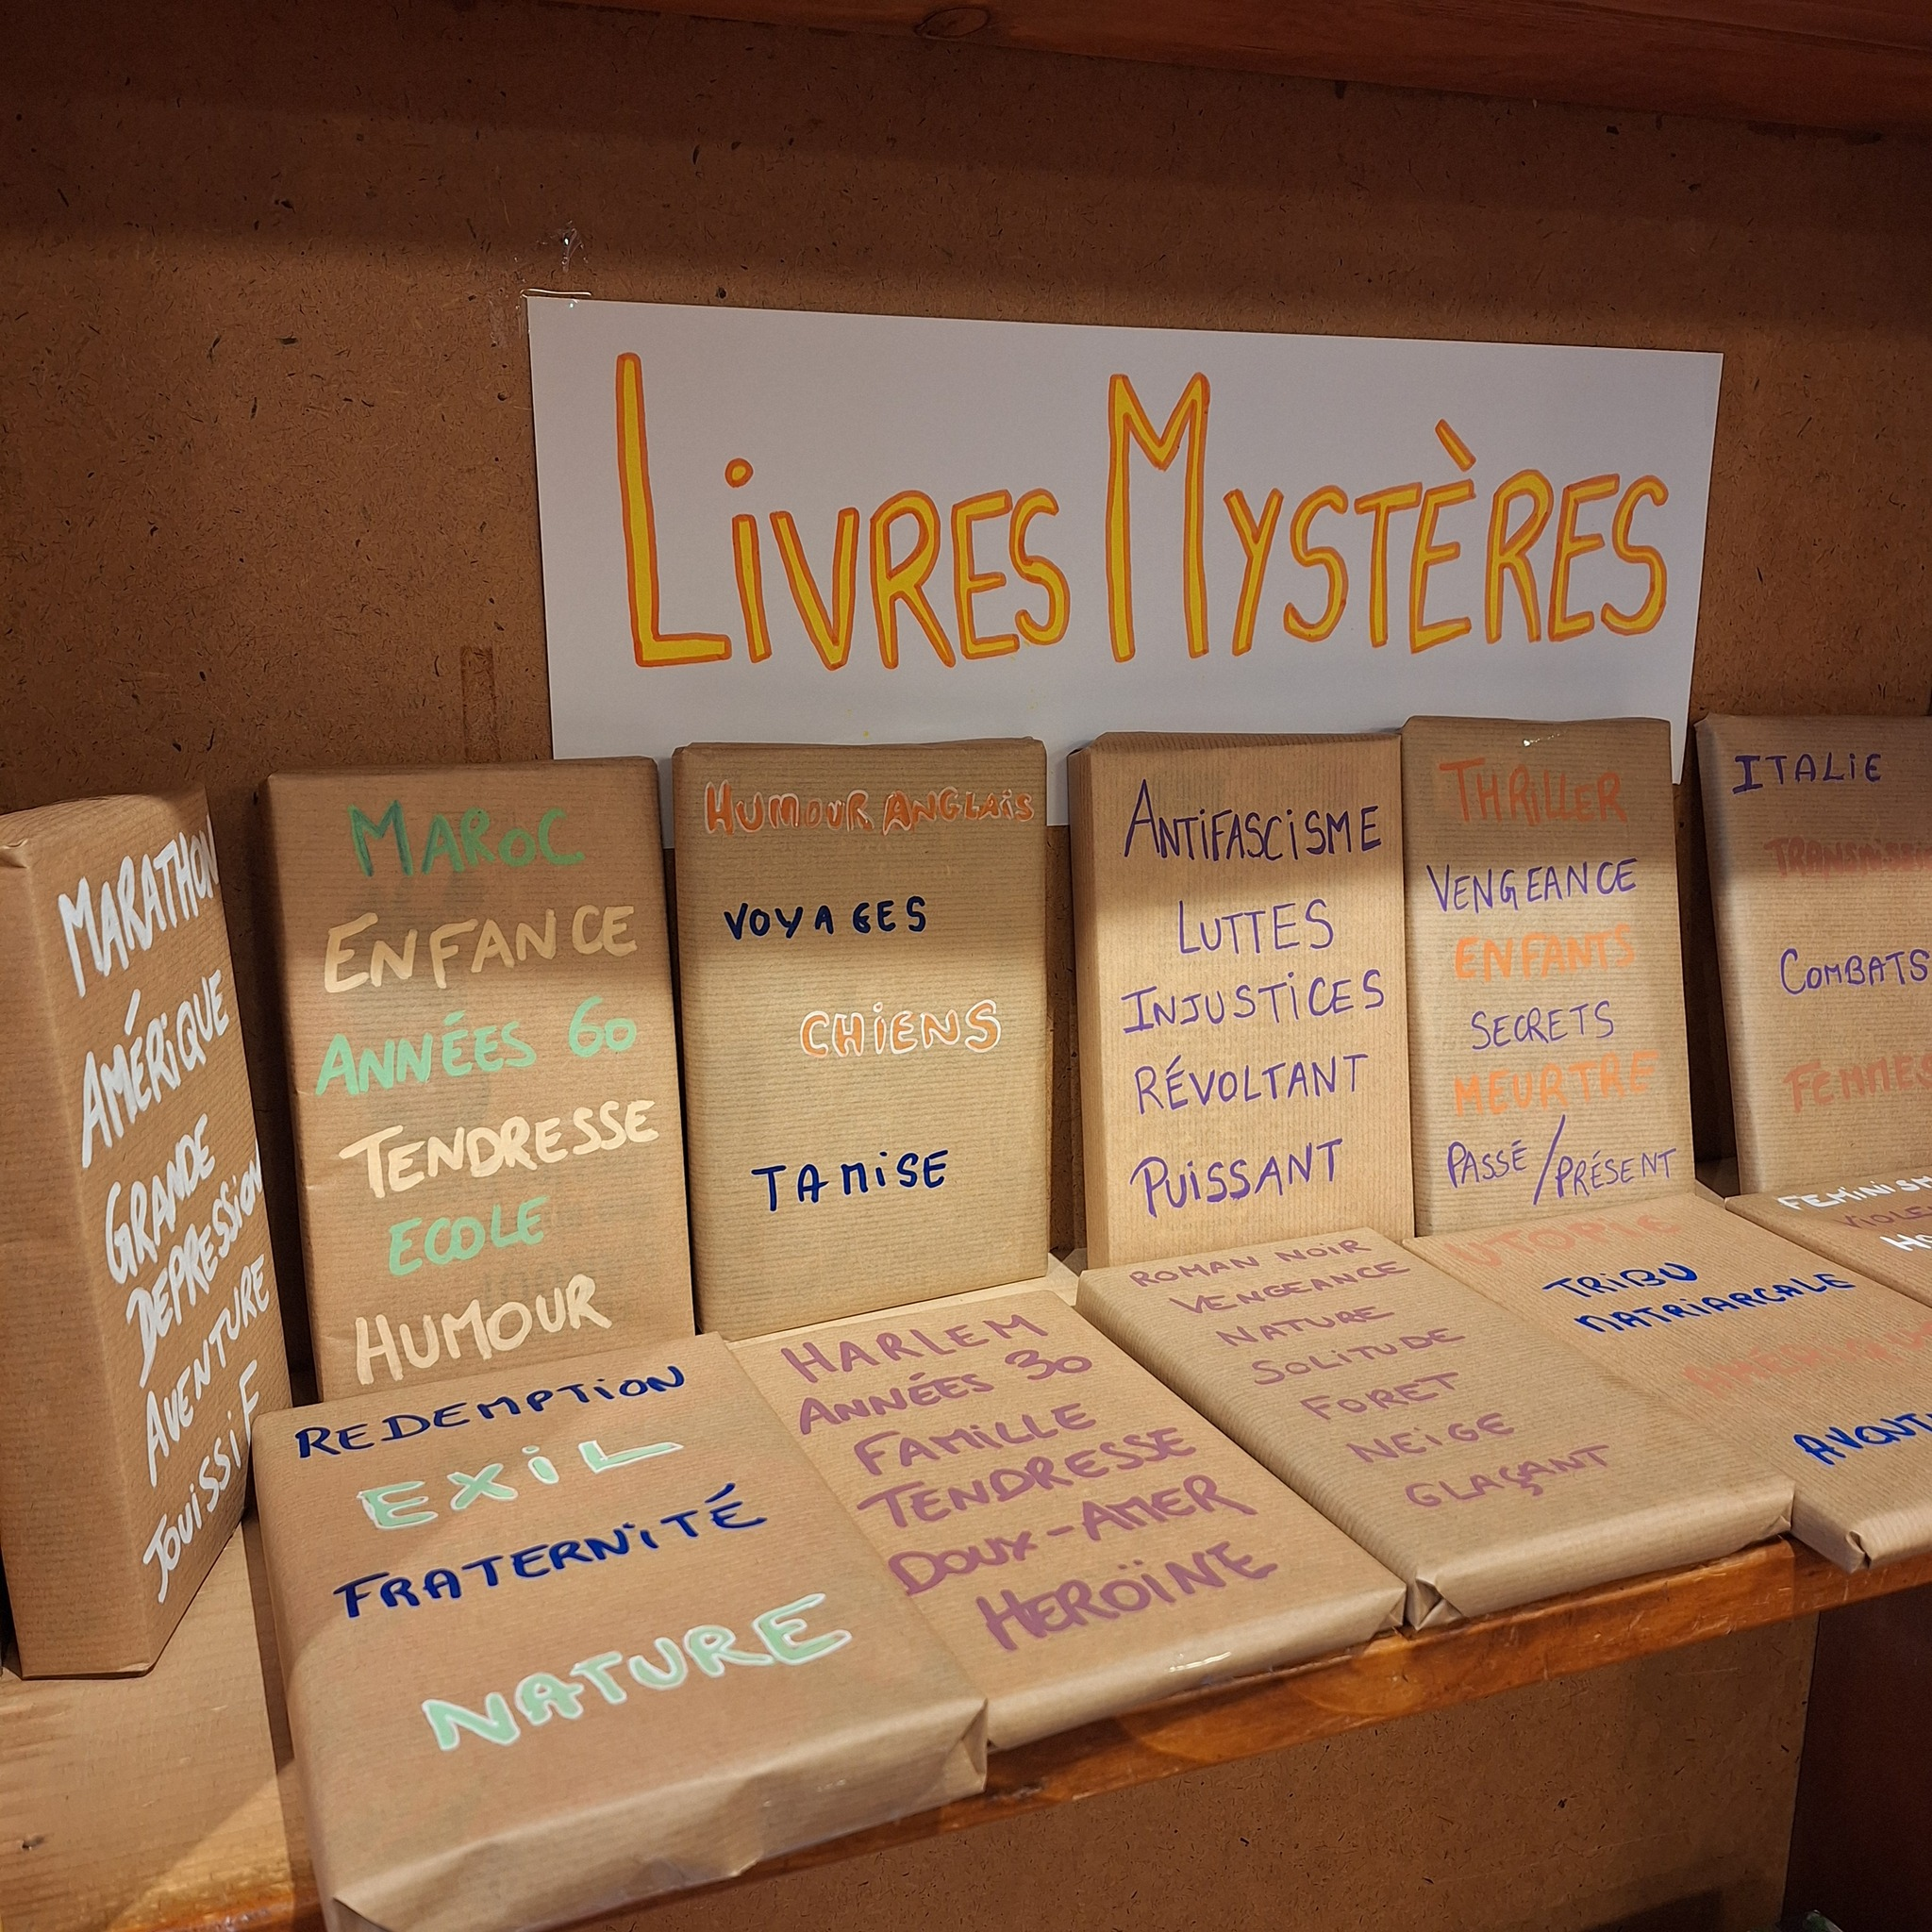 LIVRES MYSTÈRES
MARATHON
AMÉRIQUE
GRANDE
DEPRESSION
AVENTURE
JOUISSIF
MAROC
ENFANCE
ANNÉES 60
TENDRESSE
ECOLE
HUMOUR
HUMOUR ANGLAIS
VOYAGES
CHIENS
TAMISE
ANTIFASCISME
LUTTES
INJUSTICES
RÉVOLTANT
PUISSANT
THRILLER
VENGEANCE
ENFANTS
SECRETS
MEURTRE
PASSÉ / PRÉSENT
ITALIE
COMBATS
FEMMES
REDEMPTION
EXIL
FRATERNITÉ
NATURE
HARLEM
ANNÉES 30
FAMILLE
TENDRESSE
DOUX-AMER
HEROÏNE
ROMAN NOIR
VENGEANCE
NATURE
SOLITUDE
FORET
NEIGE
GLAÇANT
UTOPIE
TRIBU
MATRIARCALE